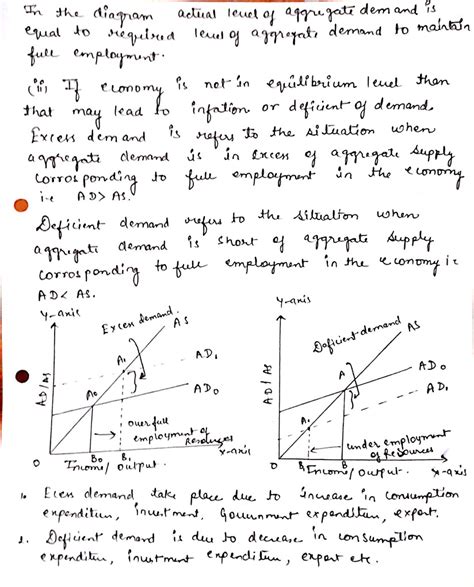 In the diagram actual level of aggregate demand is
equal to required level of aggregate demand to maintain
full employment.
(ii) If economy is not in equilibrium level then
that may lead to infation or deficient of demand.
Excess demand is refers to the situation when
aggregate demand is in Excess of aggregate supply
corrosponding to full employment in the economy
i.e AD> AS.
Deficient demand refers to the situation when
aggregate demand is short of aggregate supply
corrosponding to full employment in the economy i:e
AD< AS.
Y-axis
Excess demand.
AS
A1
AD1
A0
AD0
AD/AS
over full
employment of
Resources
0
B0
B1
x-axis
Income/ output.
Y-axis
Deficient demand
AS
AD0
A
AD1
A1
AD/AS
under employment
of Resources
0
B1
B
x-axis
Income/ output.
1. Ecess demand take place due to increase in consumption
expenditure, investment, Government expenditure, export.
2. Deficient demand is due to decrease in consumption
expenditure, investment expenditure, export etc.